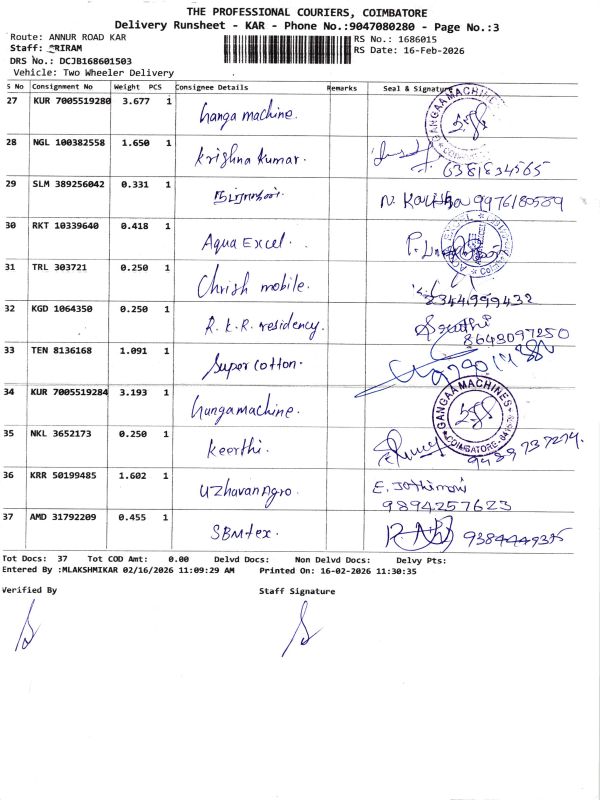 THE PROFESSIONAL COURIERS, COIMBATORE
Delivery Runsheet - KAR - Phone No.:9047080280 - Page No.:3
Route: ANNUR ROAD KAR
RS No.: 1686015
Staff: SRIRAM
RS Date: 16-Feb-2026
DRS No.: DCJB168601503
Vehicle: Two Wheeler Delivery
S No Consignment No Weight PCS Consignee Details Remarks Seal & Signature
27 KUR 7005519280 3.677 1 Ganga machine. GANGAA MACHINES
28 NGL 100382558 1.650 1 Krishna Kumar. 6381834565
29 SLM 389256042 0.331 1 9976180589
30 RKT 10339640 0.418 1 Aqua Excel.
31 TRL 303721 0.250 1 Chrish mobile. 2344999432
32 KGD 1064350 0.250 1 R.K.R. residency. 8648097250
33 TEN 8136168 1.091 1 Super cotton.
34 KUR 7005519284 3.193 1 Gangamachine. GANGAA MACHINES COIMBATORE
35 NKL 3652173 0.250 1 Keerthi.
36 KRR 50199485 1.602 1 Uzhavan Agro. E. Jothimani
9894257623
37 AMD 31792209 0.455 1 SBM tex.
Tot Docs: 37 Tot COD Amt: 0.00 Delvd Docs: Non Delvd Docs: Delvy Pts:
Entered By :MLAKSHMIKAR 02/16/2026 11:09:29 AM Printed On: 16-02-2026 11:30:35
Verified By Staff Signature